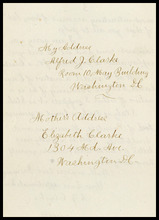 My Address
Alfred J. Clarke
Room 10 May Building
Washington DC
Mother's Address
Elizabeth Clarke
1304 Md. Ave.
Washington DC.